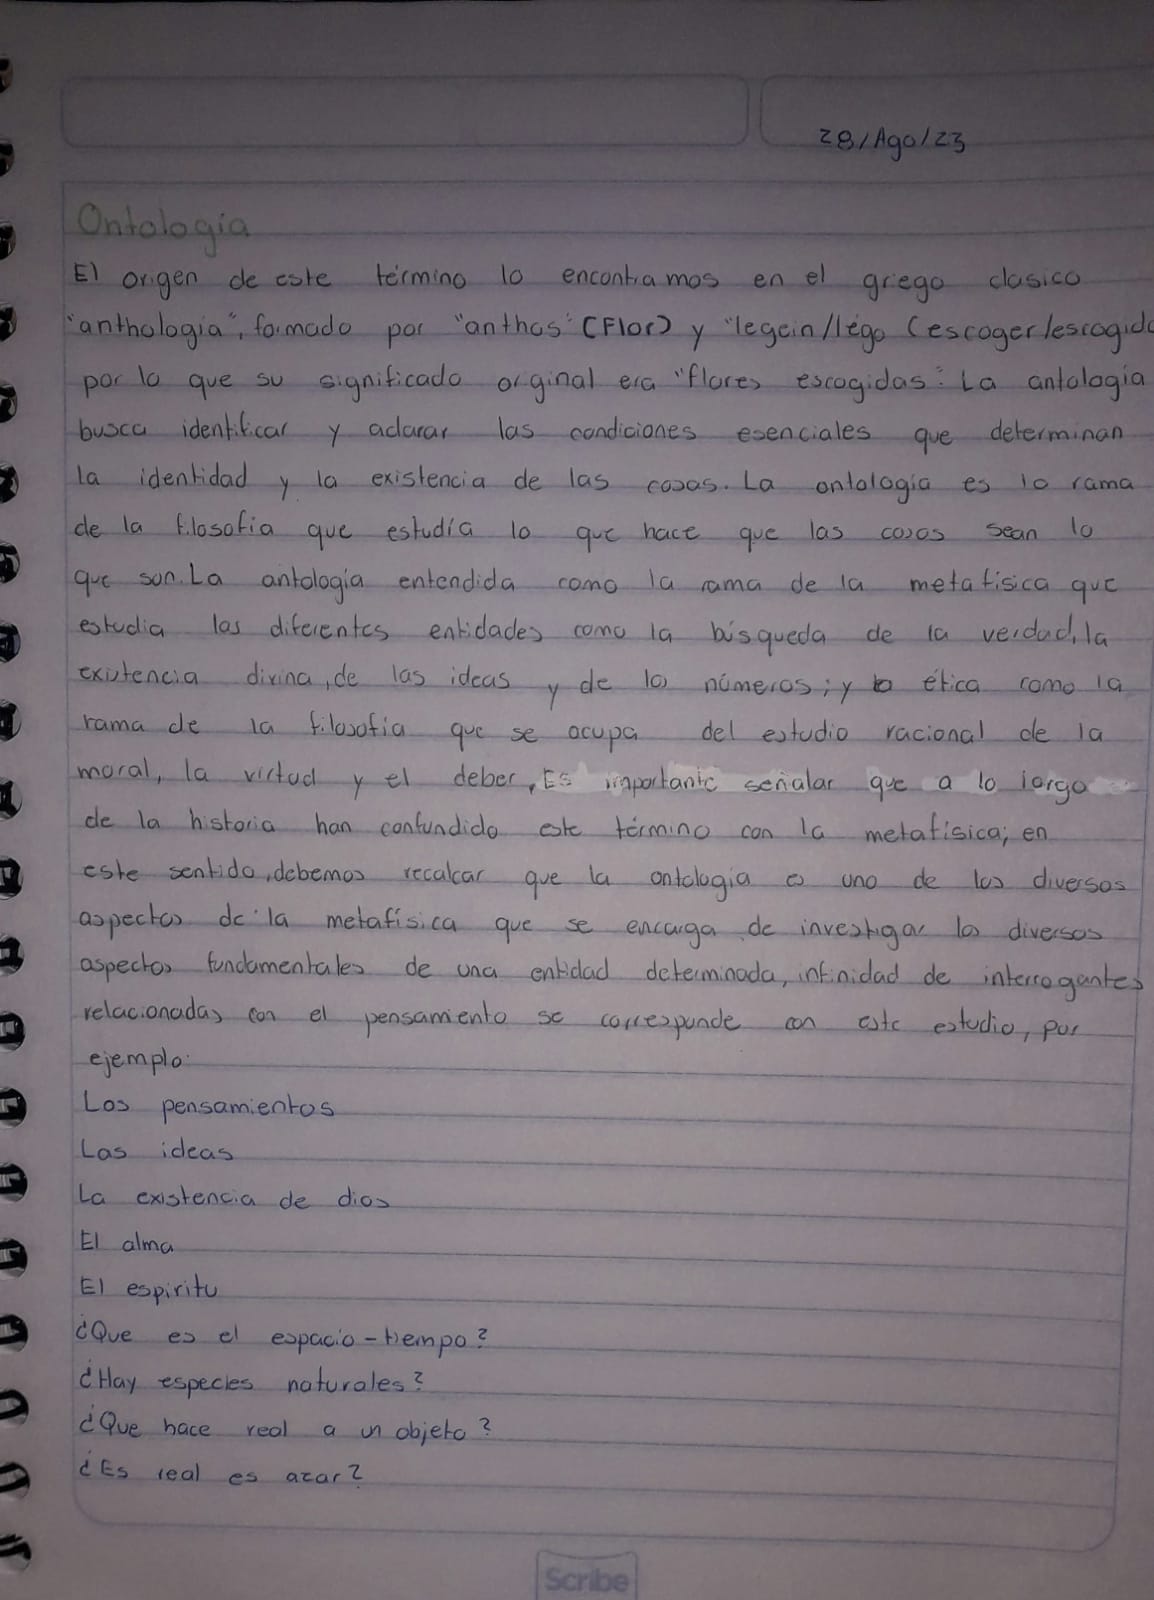 28/Ago/23
Ontologia
El origen de este término lo encontramos en el griego clasico
"anthologia", formado por "anthos" (Flor) y "legein/légo (escoger/escogido
por lo que su significado original era "flores escogidas". La antología
busca identificar y aclarar las condiciones esenciales que determinan
la identidad y la existencia de las cosas. La ontología es la rama
de la filosofia que estudía lo que hace que las cosas sean lo
que son. La antología entendida como la rama de la metafísica que
estudia las diferentes entidades como la búsqueda de la verdad, la
existencia divina, de las ideas y de los números; y la ética como la
rama de la filosofia que se ocupa del estudio racional de la
moral, la virtud y el deber, Es importante señalar que a lo largo
de la historia han confundido este término con la metafísica; en
este sentido, debemos recalcar que la ontología es uno de los diversos
aspectos de la metafísica que se encarga de investigar los diversos
aspectos fundamentales de una entidad determinada, infinidad de interrogantes
relacionadas con el pensamiento se corresponde con este estudio, por
ejemplo:
Los pensamientos
Las ideas
La existencia de dios
El alma
El espiritu
¿Que es el espacio-tiempo?
¿Hay especies naturales?
¿Que hace real a un objeto?
¿Es real es azar?
Scribe